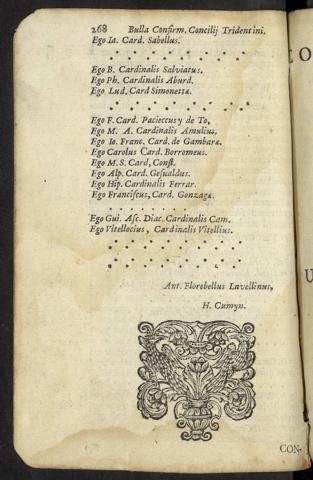 268 Bulla Confirm. Concilij Tridentini.
Ego Ia. Card. Sabellus.
Ego B. Cardinalis Salviatus.
Ego Ph. Cardinalis Aburd.
Ego Lud. Card Simonetta.
Ego F. Card. Paciettus y de To,
Ego M. A. Cardinalis Amulius.
Ego Io. Franc. Card. de Gambara.
Ego Carolus Card. Borromeus.
Ego M. S. Card, Const.
Ego Alp. Card. Gesualdus.
Ego Hip. Cardinalis Ferrar.
Ego Franciscus, Card. Gonzaga.
Ego Gui. Asc. Diac. Cardinalis Cam.
Ego Vitellocius, Cardinalis Vitellius.
Ant. Florebellus Lavellinus,
H. Cumyn.
CON-